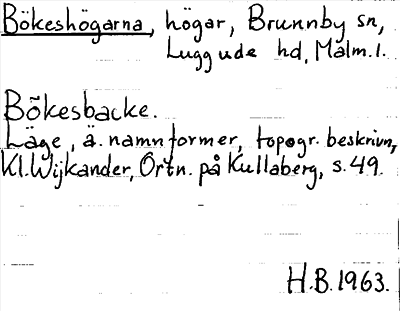 Bökeshögarna, högar, Brunnby sn,
Luggude hd, Malm.l.
Bökesbacke.
Läge, ä. namnformer, topogr. beskrivn,
Kl. Wijkander, Ortn. på Kullaberg, s. 49.
H.B. 1963.